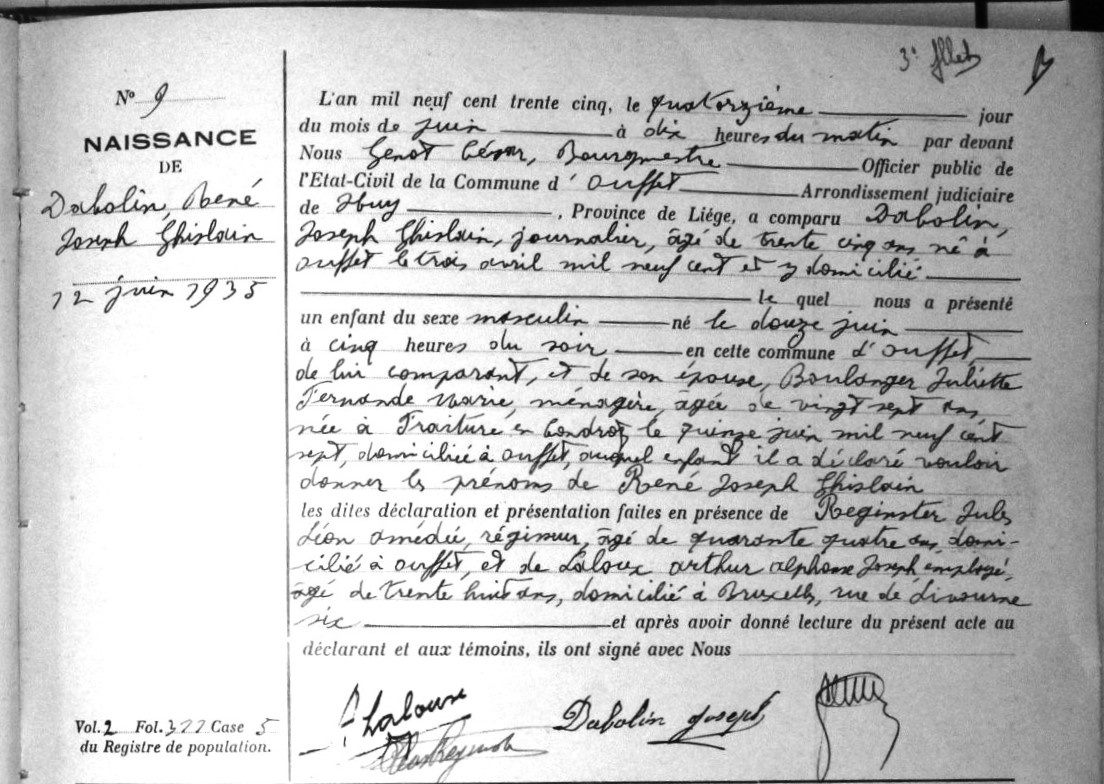 N° 9
NAISSANCE
DE
Dabolin, René
Joseph Ghislain
12 juin 1935
Vol. 2 Fol. 377 Case 5
du Registre de population.
L'an mil neuf cent trente cinq, le quatorzième jour
du mois de juin à dix heures du matin par devant
Nous Genot César, Bourgmestre Officier public de
l'Etat-Civil de la Commune d'Ouffet Arrondissement judiciaire
de Huy, Province de Liége, a comparu Dabolin,
Joseph Ghislain, journalier, âgé de trente cinq ans né à
Ouffet le trois avril mil neuf cent et y domicilié
le quel nous a présenté
un enfant du sexe masculin né le douze juin
à cinq heures du soir en cette commune d'Ouffet,
de lui comparant, et de son épouse, Boulanger Juliette
Fernande Marie, ménagère, âgée de vingt sept ans,
née à Fraiture en Condroz le quinze juin mil neuf cent
sept, domiciliée à Ouffet, auquel enfant il a déclaré vouloir
donner les prénoms de René Joseph Ghislain
les dites déclaration et présentation faites en présence de Reginster Jules
Léon Amédée, régisseur, âgé de quarante quatre ans, domi-
cilié à Ouffet, et de Laloux Arthur Alphonse Joseph, employé,
âgé de trente huit ans, domicilié à Bruxelles, rue de Livourne
six et après avoir donné lecture du présent acte au
déclarant et aux témoins, ils ont signé avec Nous
Laloux
Dabolin Joseph